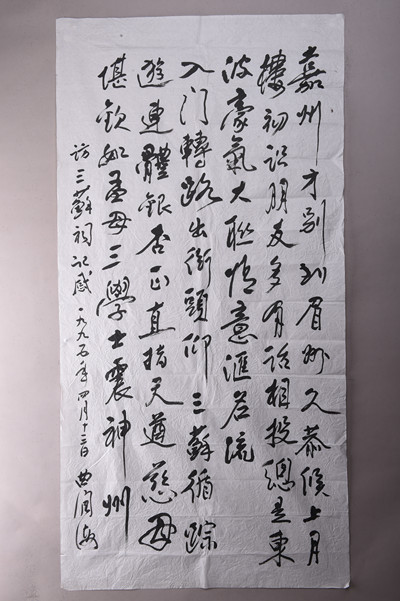 嘉州才别到眉州久恭候上月
樓初识朋友多有話相投總是東
波豪氣大聯情意匯名流
入门轉路出街頭仰三蘇循踪
遊連體銀杏正直指天遵慈母
堪欽如孟母三學士震神州
访三蘇祠記感 一九九五年四月十三日 曲润海